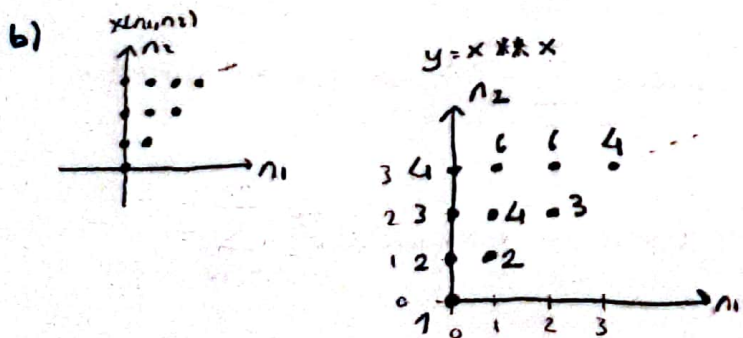 b)
x(n1,n2)
n2
n1
y = x ** x
n2
6 6 4
3 4
2 3 4 3
1 2 2
0
1 0 1 2 3 n1